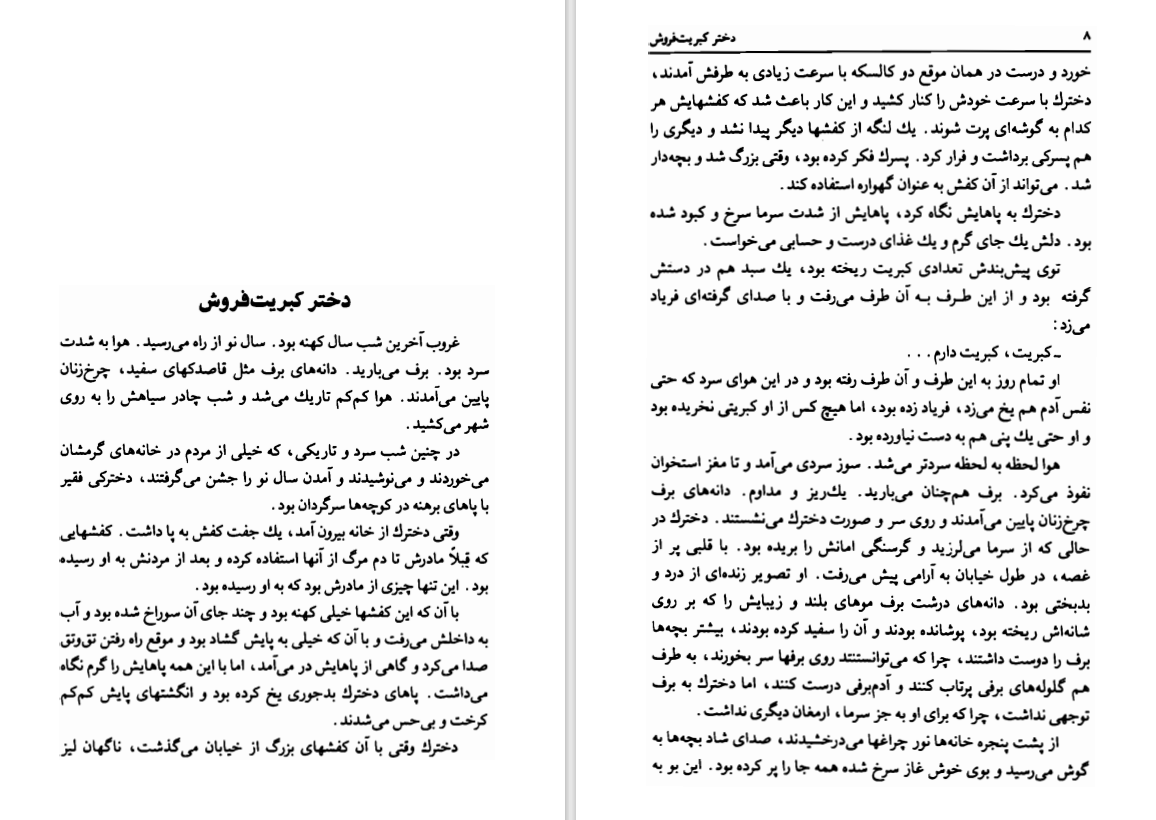 دختر کبریت‌فروش
غروب آخرین شب سال کهنه بود. سال نو از راه می‌رسید. هوا به شدت
سرد بود. برف می‌بارید. دانه‌های برف مثل قاصدکهای سفید، چرخ‌زنان
پایین می‌آمدند. هوا کم‌کم تاریك می‌شد و شب چادر سیاهش را به روی
شهر می‌کشید.
در چنین شب سرد و تاریکی، که خیلی از مردم در خانه‌های گرمشان
می‌خوردند و می‌نوشیدند و آمدن سال نو را جشن می‌گرفتند، دخترکی فقیر
با پاهای برهنه در کوچه‌ها سرگردان بود.
وقتی دخترك از خانه بیرون آمد، یك جفت کفش به پا داشت. کفشهایی
که قبلاً مادرش تا دم مرگ از آنها استفاده کرده و بعد از مردنش به او رسیده
بود. این تنها چیزی از مادرش بود که به او رسیده بود.
با آن که این کفشها خیلی کهنه بود و چند جای آن سوراخ شده بود و آب
به داخلش می‌رفت و با آن که خیلی به پایش گشاد بود و موقع راه رفتن تق‌وتق
صدا می‌کرد و گاهی از پاهایش در می‌آمد، اما با این همه پاهایش را گرم نگاه
می‌داشت. پاهای دخترك بدجوری یخ کرده بود و انگشتهای پایش کم‌کم
کرخت و بی‌حس می‌شدند.
دخترك وقتی با آن کفشهای بزرگ از خیابان می‌گذشت، ناگهان لیز
۸
دختر کبریت‌فروش
خورد و درست در همان موقع دو کالسکه با سرعت زیادی به طرفش آمدند،
دخترك با سرعت خودش را کنار کشید و این کار باعث شد که کفشهایش هر
کدام به گوشه‌ای پرت شوند. یك لنگه از کفشها دیگر پیدا نشد و دیگری را
هم پسرکی برداشت و فرار کرد. پسرك فکر کرده بود، وقتی بزرگ شد و بچه‌دار
شد. می‌تواند از آن کفش به عنوان گهواره استفاده کند.
دخترك به پاهایش نگاه کرد، پاهایش از شدت سرما سرخ و کبود شده
بود. دلش یك جای گرم و یك غذای درست و حسابی می‌خواست.
توی پیش‌بندش تعدادی کبریت ریخته بود، یك سبد هم در دستش
گرفته بود و از این طرف بـه آن طرف می‌رفت و با صدای گرفته‌ای فریاد
می‌زد:
ـ کبریت، کبریت دارم...
او تمام روز به این طرف و آن طرف رفته بود و در این هوای سرد که حتی
نفس آدم هم یخ می‌زد، فریاد زده بود، اما هیچ کس از او کبریتی نخریده بود
و او حتی یك پنی هم به دست نیاورده بود.
هوا لحظه به لحظه سردتر می‌شد. سوز سردی می‌آمد و تا مغز استخوان
نفوذ می‌کرد. برف هم‌چنان می‌بارید. یك‌ریز و مداوم. دانه‌های برف
چرخ‌زنان پایین می‌آمدند و روی سر و صورت دخترك می‌نشستند. دخترك در
حالی که از سرما می‌لرزید و گرسنگی امانش را بریده بود. با قلبی پر از
غصه، در طول خیابان به آرامی پیش می‌رفت. او تصویر زنده‌ای از درد و
بدبختی بود. دانه‌های درشت برف موهای بلند و زیبایش را که بر روی
شانه‌اش ریخته بود، پوشانده بودند و آن را سفید کرده بودند، بیشتر بچه‌ها
برف را دوست داشتند، چرا که می‌توانستند روی برفها سر بخورند، به طرف
هم گلوله‌های برفی پرتاب کنند و آدم‌برفی درست کنند، اما دخترك به برف
توجهی نداشت، چرا که برای او به جز سرما، ارمغان دیگری نداشت.
از پشت پنجره خانه‌ها نور چراغها می‌درخشیدند، صدای شاد بچه‌ها به
گوش می‌رسید و بوی خوش غاز سرخ شده همه جا را پر کرده بود. این بو به